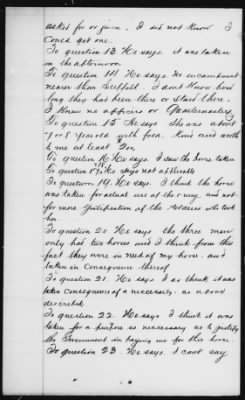 asked for or given. I did not know I
Could get one.
To question 13 He says. it was taken
in the afternoon
To question 14 He says. No encampment
nearer than I don't know how
long they had been there or staid there.
I know no officers or Quartermasters
To question 15 He says She was about
7 or 8 years old with foal. Was worth
to me at least 200
To question 16 He says. I saw the horse taken
To question 17 & 18 He says not applicable
To question 19. He says. I think the horse
was taken for actual use of the army and not
for mere gratification of the soldiers who took
her.
To question 20 He says the three men
only had two horses and I think from this
fact they were in need of my horse. and
taken in consequence thereof
To question 21. He says I do think it was
taken consequence of a necessity. as above
described
To question 22. He says I think it was
taken for a purpose so necessary as to justify
the Government in paying me for this horse.
To question 23 He says. I can't say